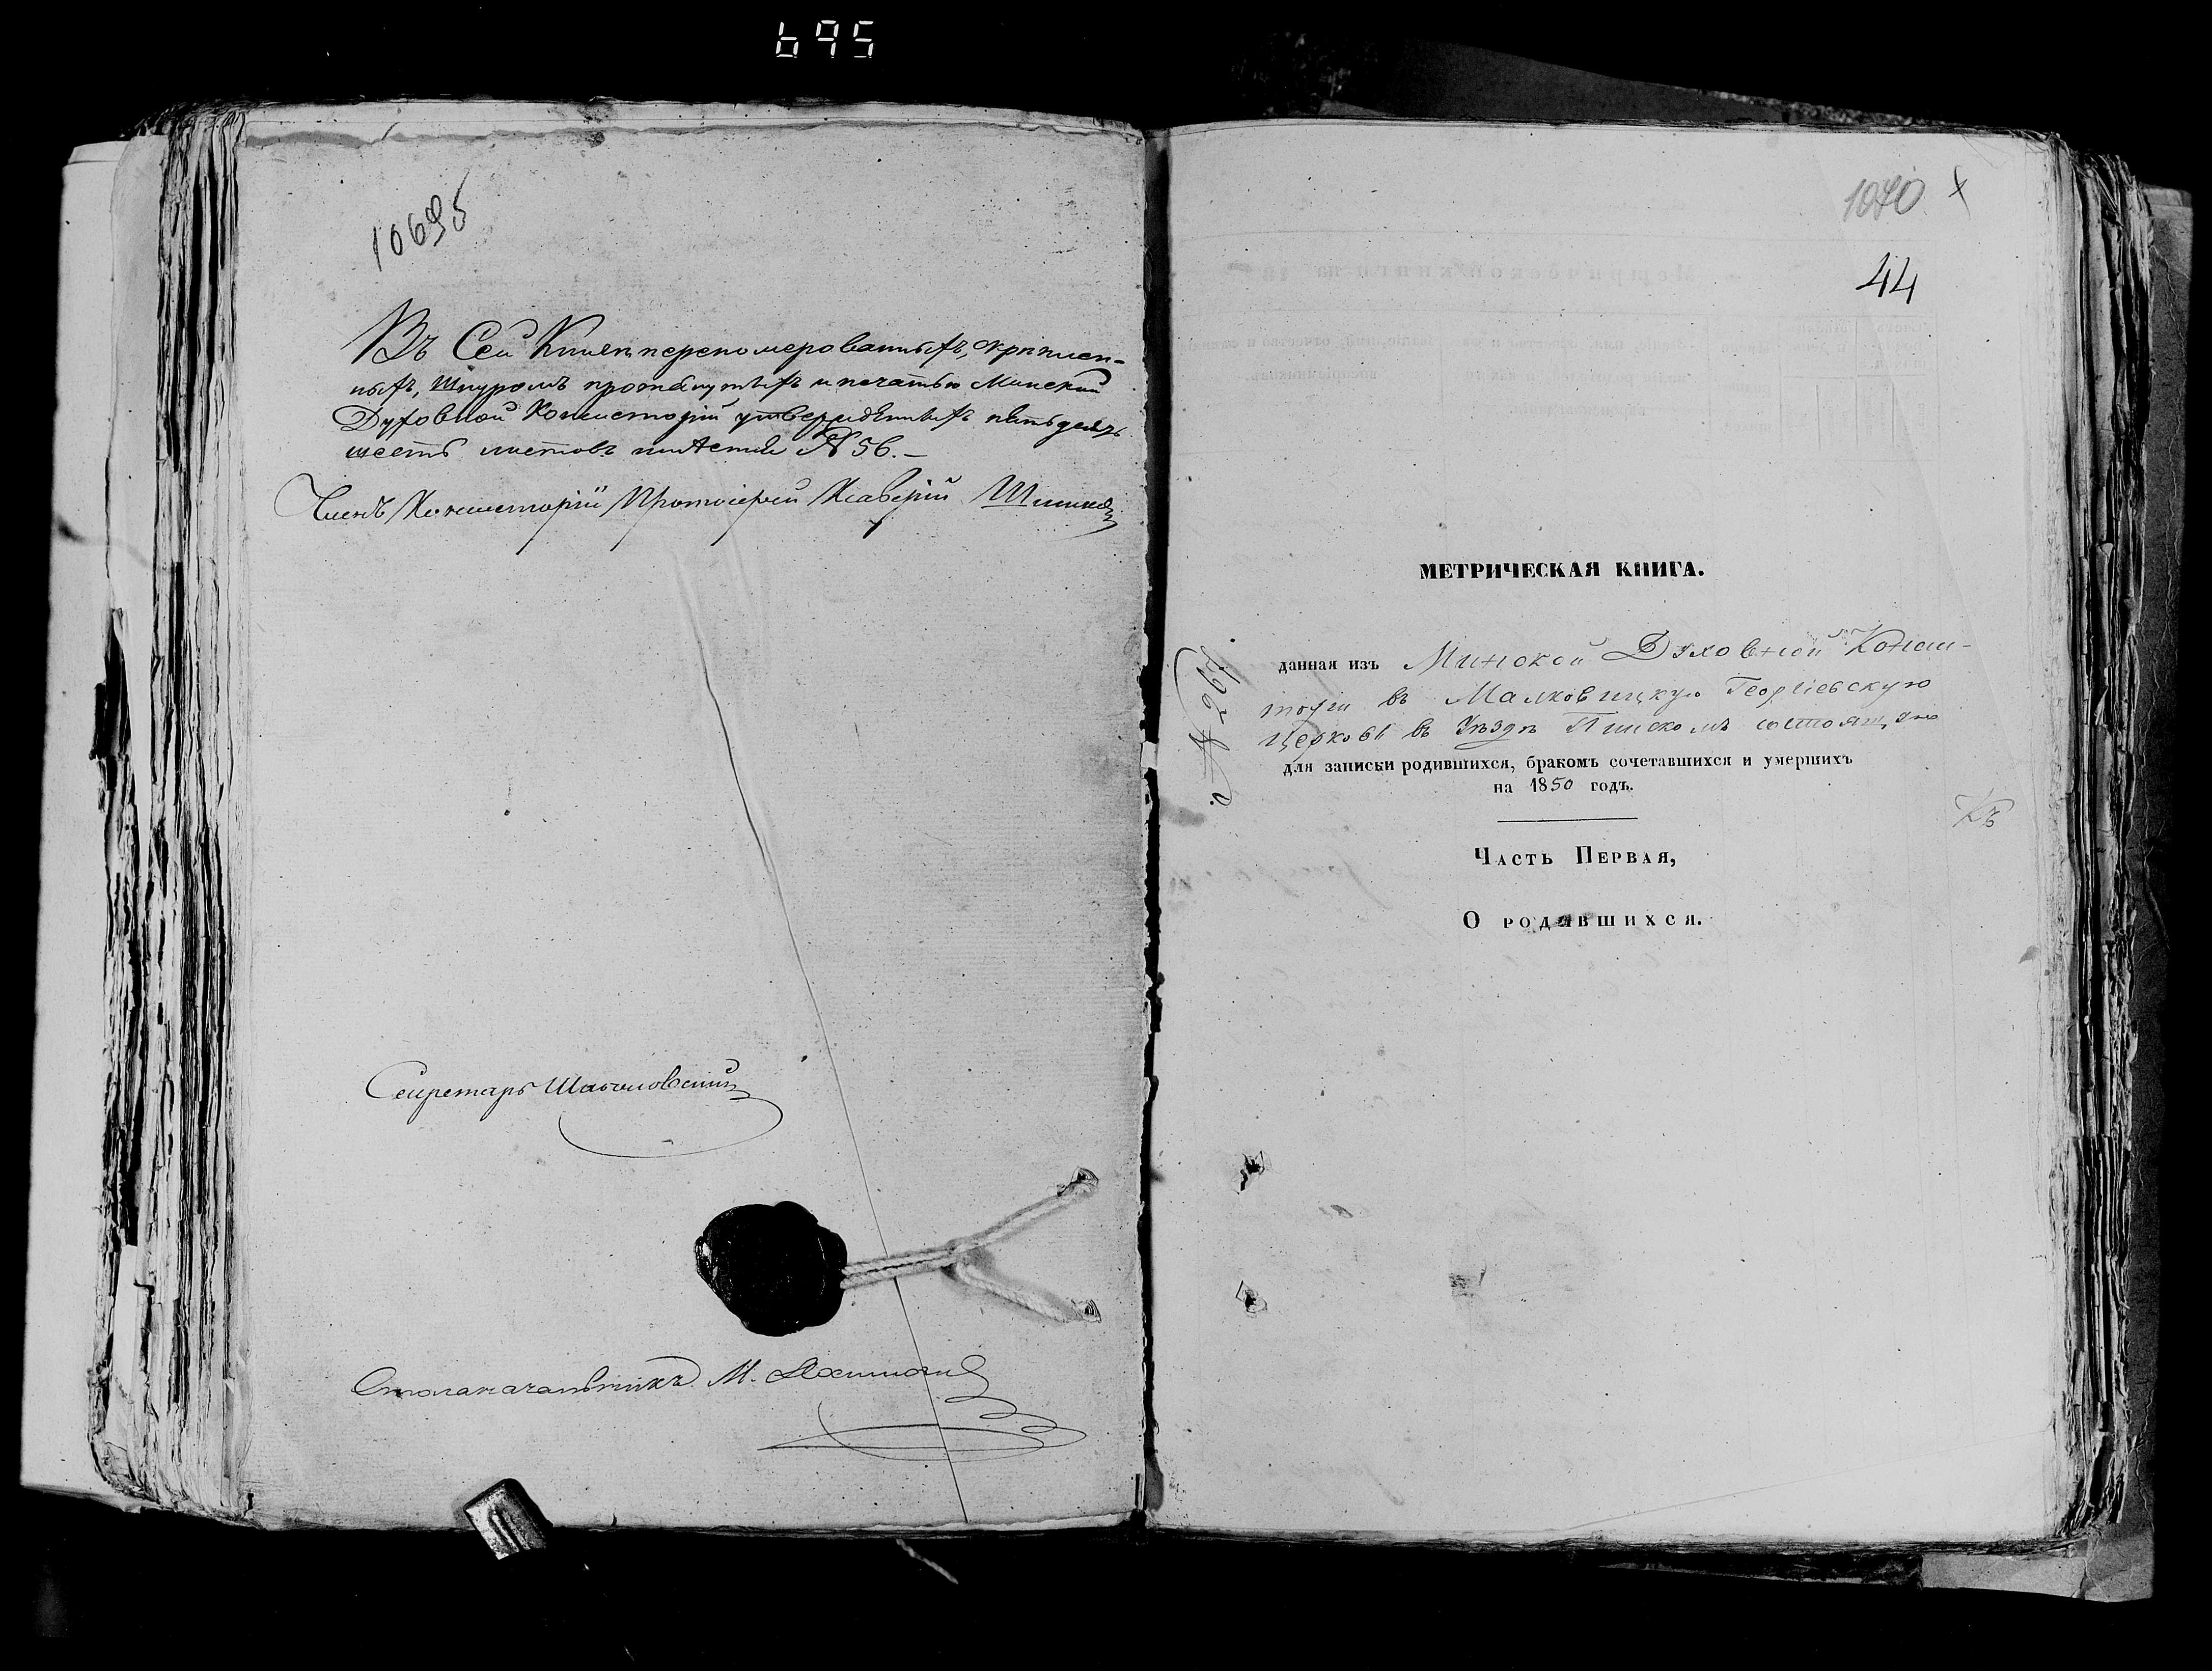 695
10695
Въ Сей Книгѣ перенумерованныхъ, скрѣплен-
ныхъ, шнуромъ протянутыхъ и печатью Минской
Духовной Консисторіи утвержденныхъ пятьдесятъ
шесть листовъ N 56. –
Членъ Консисторіи Протоіерей Ксаверій
Секретарь
Столоначальникъ М.
1040
44
МЕТРИЧЕСКАЯ КНИГА.
данная изъ Минской Духовной Конси-
торіи въ Малковицкую Георгіевскую
Церковь въ Уѣздѣ Пинскомъ состоящую
для записки родившихся, бракомъ сочетавшихся и умершихъ
на 1850 годъ.
Часть Первая,
О родившихся.